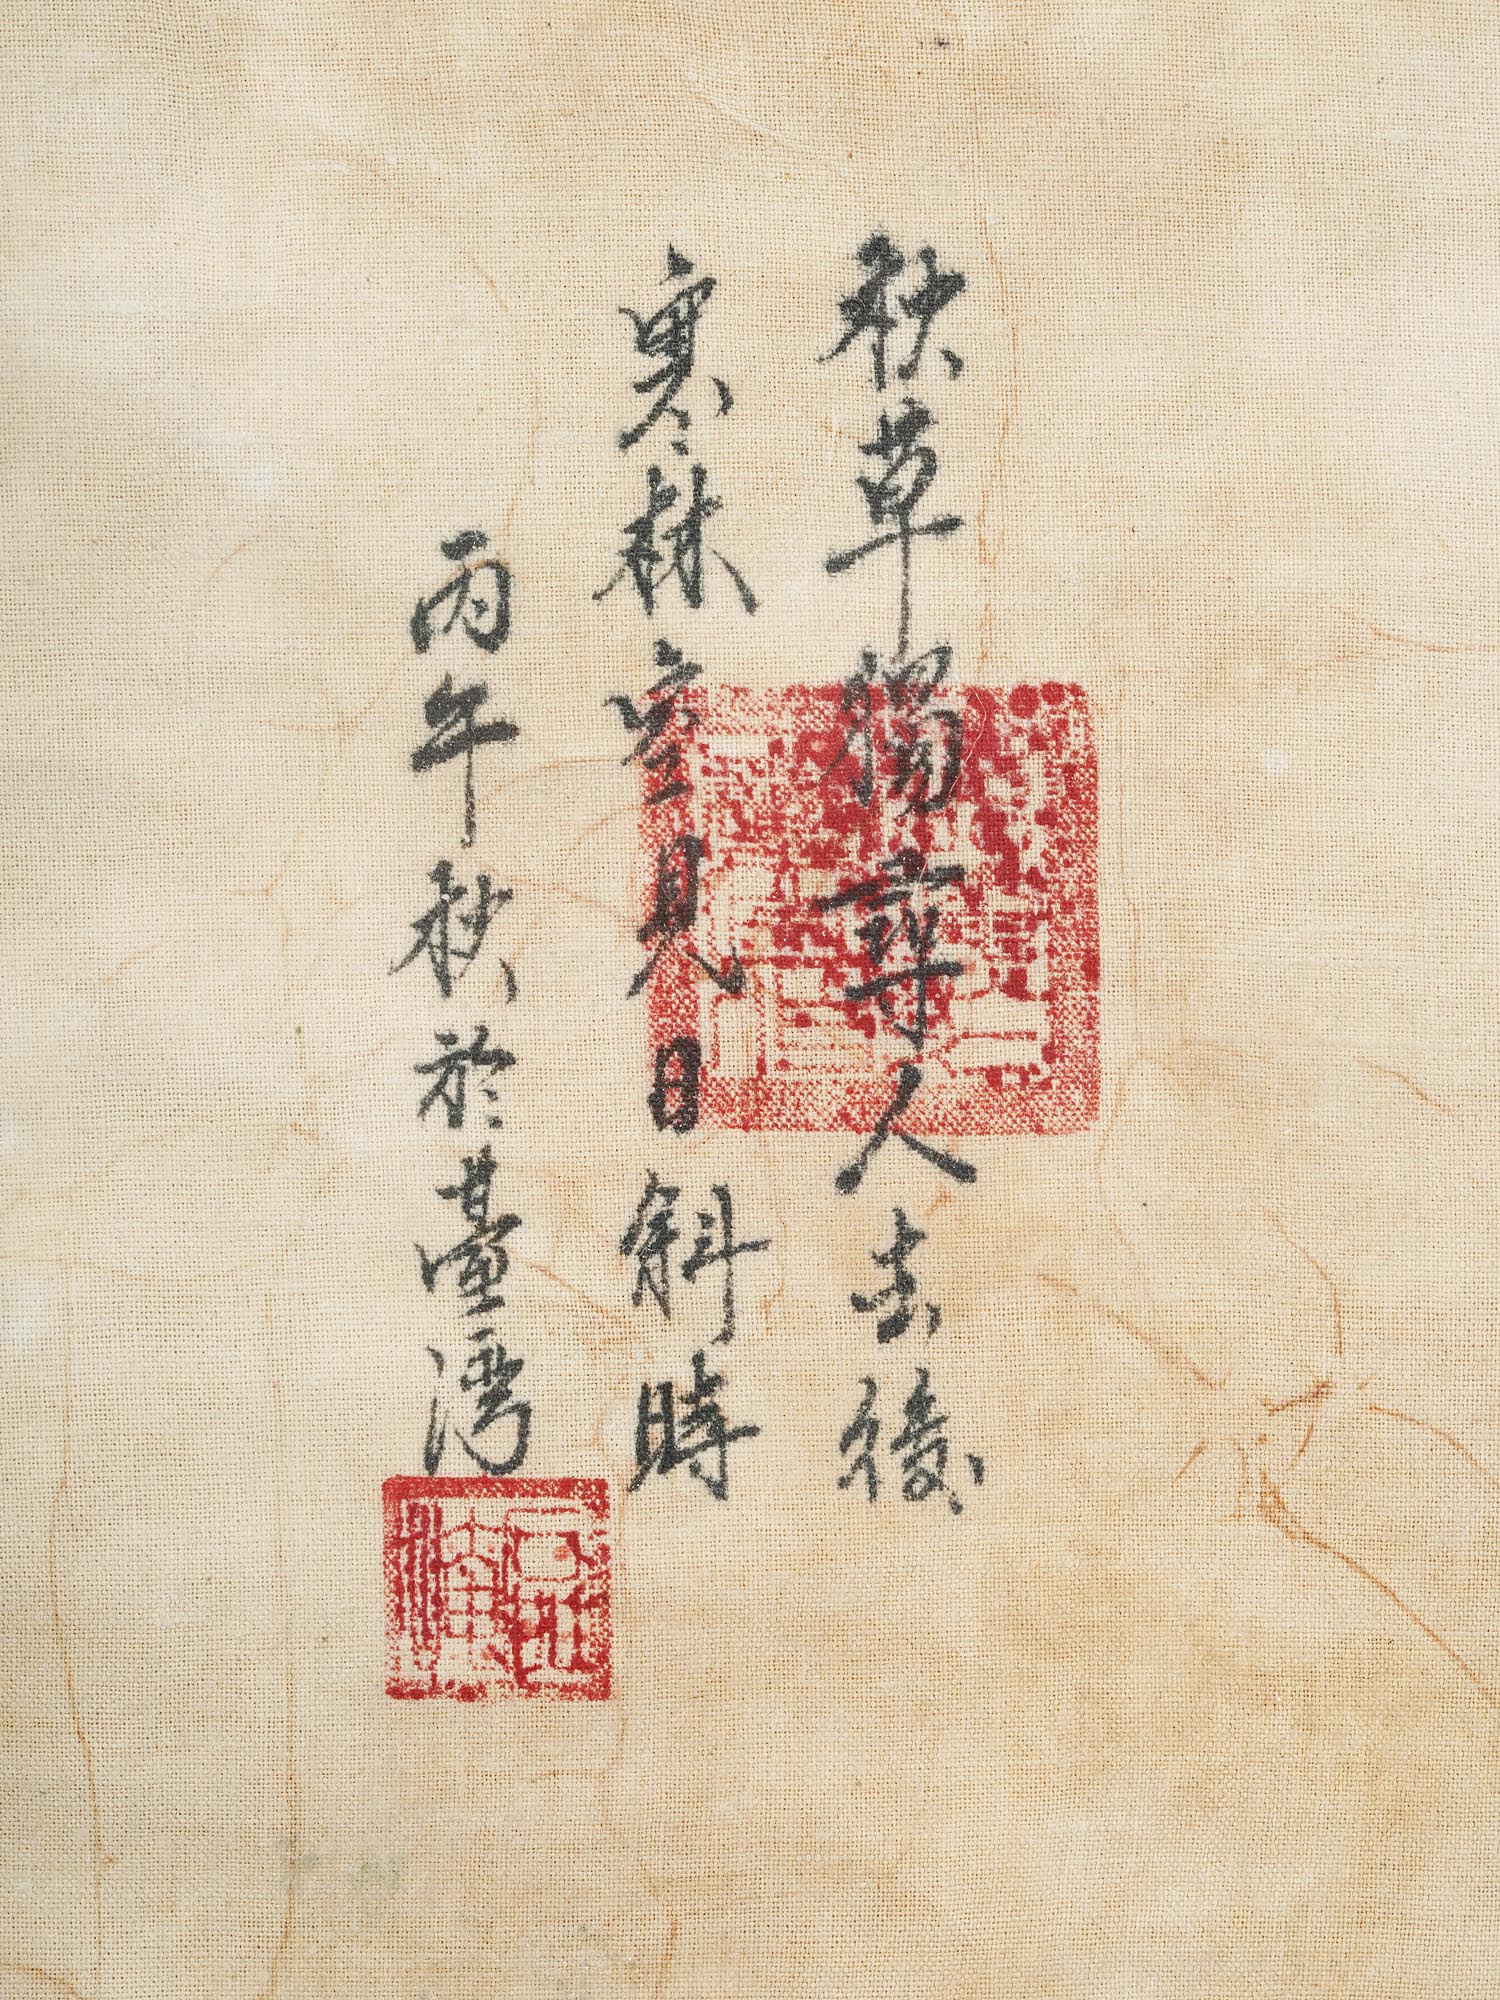 秋草獨尋人去後
寒林空見日斜時
丙午秋於臺灣